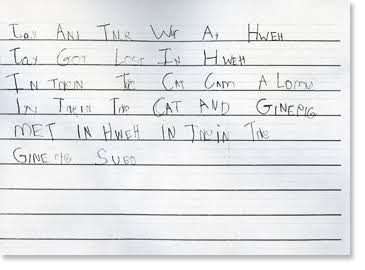 Tay And Thr Wr At Hweh
Tay Got Lost In Hweh
In Thrin The Cat Cam A Lomu
In Thrin The CAT AND GINEPIG
MET IN HWEH IN Thrin The
GINE PIG SUDD